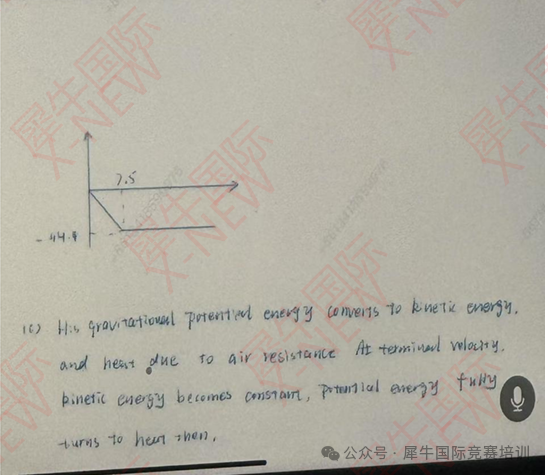 7.5
- 44.1
(c) His gravitational potential energy converts to kinetic energy.
and heat due to air resistance At terminal velocity.
kinetic energy becomes constant, potential energy fully
turns to heat then.
犀牛国际
X-NEW
犀牛国际
X-NEW
犀牛国际
X-NEW
公众号 · 犀牛国际竞赛培训